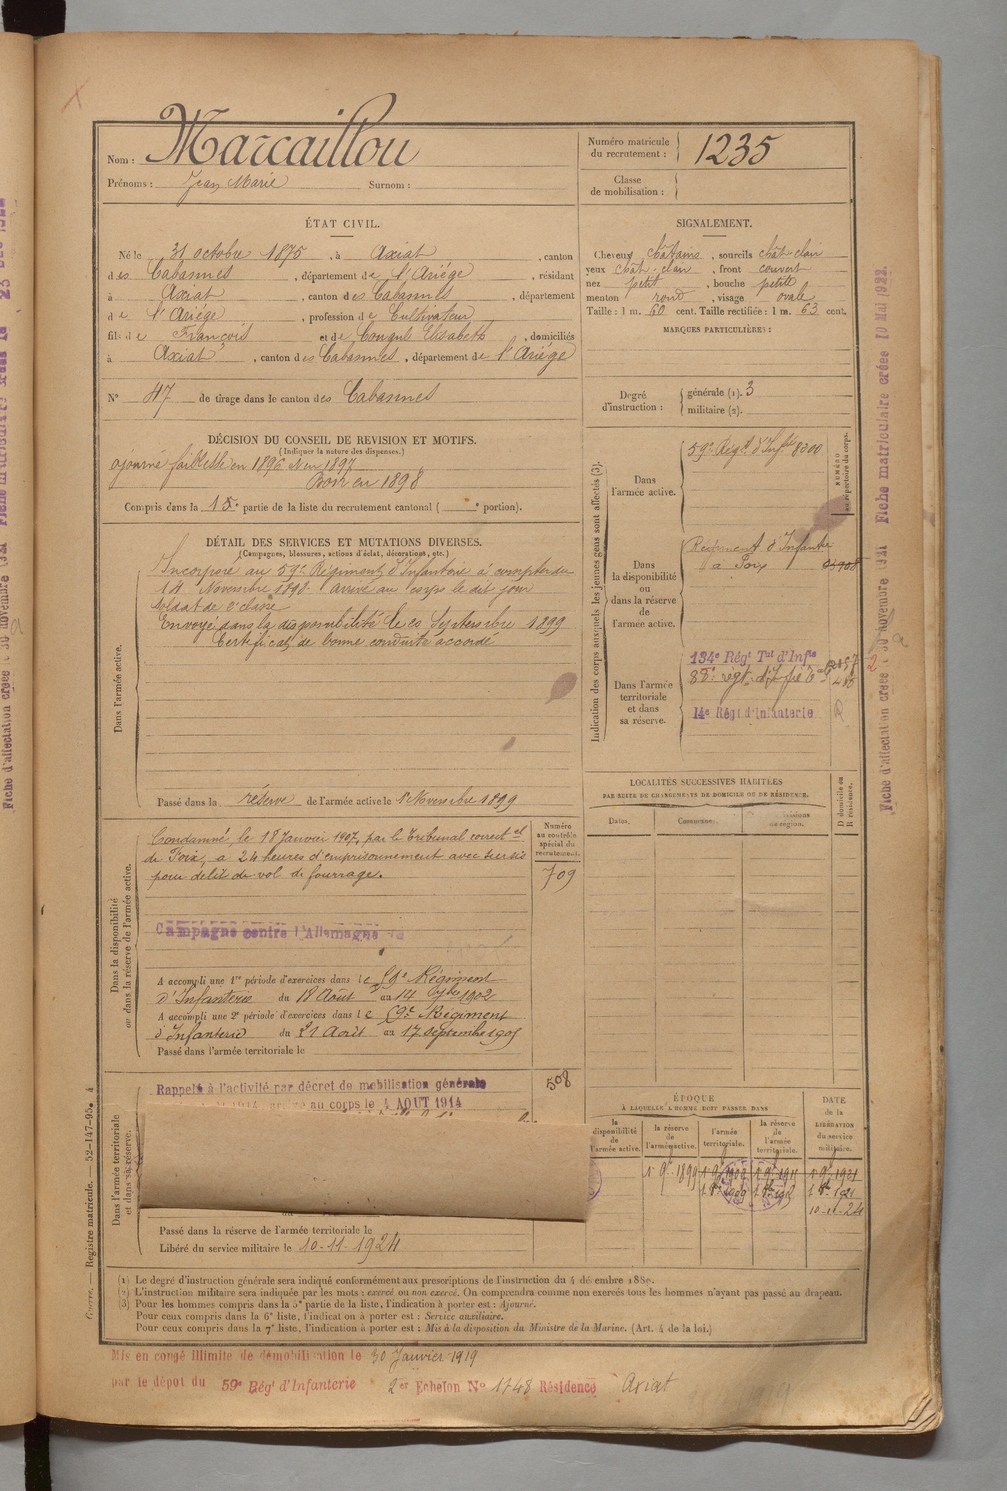 Nom : Marcaillou
Prénoms : Jean Marie Surnom :
Numéro matricule du recrutement : 1235
Classe de mobilisation :
ÉTAT CIVIL.
Né le 31 octobre 1875, à Axiat, canton
des Cabannes, département de l'Ariége, résidant
à Axiat, canton des Cabannes, département
de l'Ariége, profession de Cultivateur
fils de François et de Elisabeth, domiciliés
à Axiat, canton des Cabannes, département de l'Ariége
N° 47 de tirage dans le canton des Cabannes
SIGNALEMENT.
Cheveux châtains, sourcils chât-clair
yeux chât-clair, front couvert
nez petit, bouche petite
menton rond, visage ovale
Taille : 1 m. 60 cent. Taille rectifiée : 1 m. 63 cent.
MARQUES PARTICULIÈRES :
Degré d'instruction :
générale (1). 3
militaire (2).
DÉCISION DU CONSEIL DE REVISION ET MOTIFS.
(Indiquer la nature des dispenses.)
ajourné faiblesse en 1896 et en 1897
Bon en 1898
Compris dans la 1e partie de la liste du recrutement cantonal ( portion).
DÉTAIL DES SERVICES ET MUTATIONS DIVERSES.
(Campagnes, blessures, actions d'éclat, décorations, etc.)
Dans l'armée active.
Incorporé au 59e Régiment d'Infanterie à compter du
14 Novembre 1898. Arrivé au corps le dit jour
Soldat de 2e classe
Envoyé dans la disponibilité le 20 Septembre 1899
Certificat de bonne conduite accordé
Passé dans la réserve de l'armée active le 1er Novembre 1899
Indication des corps auxquels les jeunes gens sont affectés (3).
NUMÉRO au répertoire du corps.
Dans l'armée active.
59e Régt d'Infie 8300
Dans la disponibilité ou dans la réserve de l'armée active.
Régiment d'Infanterie
à Foix
Dans l'armée territoriale et dans sa réserve.
134e Régt Tal d'Infie
14e Régt d'Infanterie
LOCALITÉS SUCCESSIVES HABITÉES
PAR SUITE DE CHANGEMENTS DE DOMICILE OU DE RÉSIDENCE.
Dates. Communes. Subdivisions de région. D domicile ou R résidence.
Dans la disponibilité ou dans la réserve de l'armée active.
Numéro au contrôle spécial du recrutement.
709
Condamné, le 18 Janvier 1907, par le Tribunal correctel
de Foix, à 24 heures d'emprisonnement avec sursis
pour délit de vol de fourrage.
Campagne contre l'Allemagne du
A accompli une 1re période d'exercices dans le 59e Régiment
d'Infanterie du 18 Août au 14 7bre 1902
A accompli une 2e période d'exercices dans le 59e Régiment
d'Infanterie du 21 Août au 17 septembre 1905
Passé dans l'armée territoriale le
Dans l'armée territoriale et dans sa réserve.
508
Rappelé à l'activité par décret de mobilisation générale
au corps le 4 AOUT 1914
Passé dans la réserve de l'armée territoriale le
Libéré du service militaire le 10-11-1924
ÉPOQUE
À LAQUELLE L'HOMME DOIT PASSER DANS
la disponibilité de l'armée active. la réserve de l'armée active. l'armée territoriale. la réserve de l'armée territoriale.
DATE de la LIBÉRATION du service militaire.
1 9bre 1899 1 9bre 1909
10-11-24
(1) Le degré d'instruction générale sera indiqué conformément aux prescriptions de l'instruction du 4 décembre 1889.
(2) L'instruction militaire sera indiquée par les mots : exercé ou non exercé. On comprendra comme non exercés tous les hommes n'ayant pas passé au drapeau.
(3) Pour les hommes compris dans la 5e partie de la liste, l'indication à porter est : Ajourné.
Pour ceux compris dans la 6e liste, l'indication à porter est : Service auxiliaire.
Pour ceux compris dans la 7e liste, l'indication à porter est : Mis à la disposition du Ministre de la Marine. (Art. 4 de la loi.)
Mis en congé illimité de démobilisation le 30 Janvier 1919
par le dépôt du 59e Régt d'Infanterie 2er Echelon N° 1748 Résidence Axiat
Guerre. — Registre matricule. — 52-147-95.
Fiche matriculaire créée 10 Mai 1922.
Fiche d'affectation créée novembre